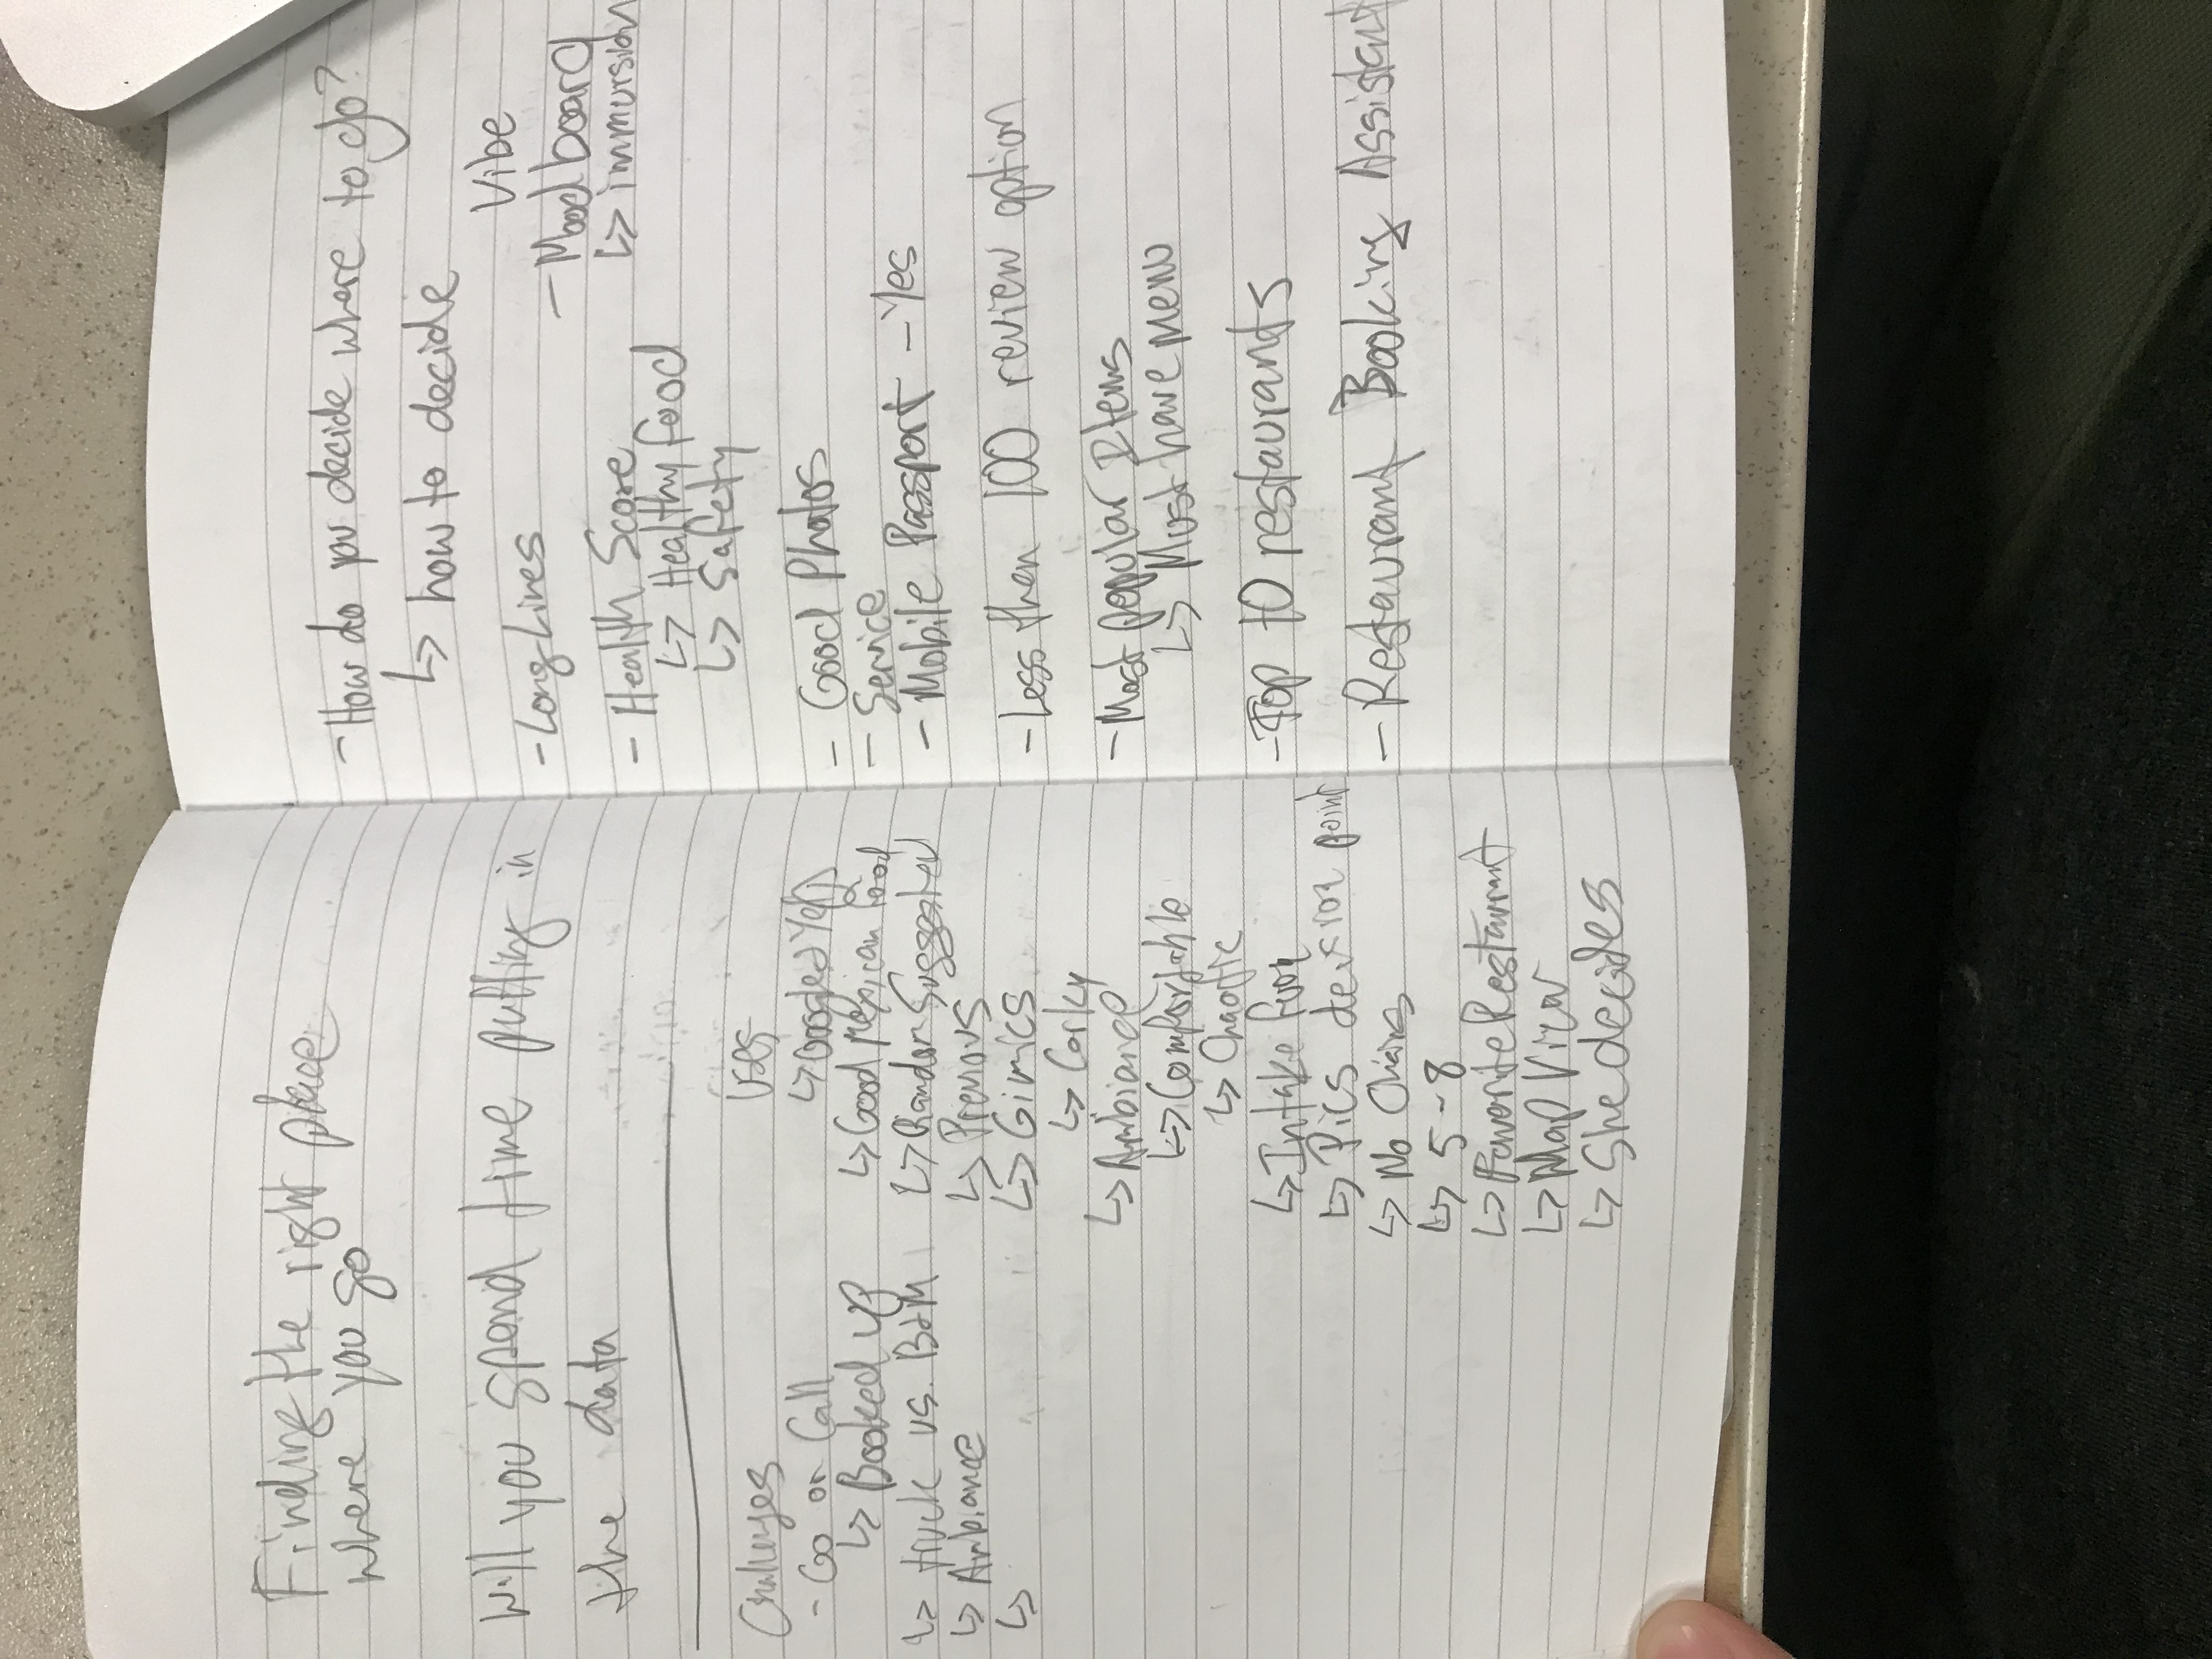 Finding the right place
where you go
Will you spend time putting in
the data
Challenges
- Go or Call
↳ Booked up
↳ truck vs. B&M
↳ Ambiance
↳
Uses
↳ Googled Yelp
↳ Good Mexican food
↳ Random Suggested
↳ Previous
↳ Gimics
↳ Corky
↳ Ambiance
↳ Comfortable
↳ Chaotic
↳ Intake
↳ Pics decision point
↳ No Chains
↳ 5-8
↳ Favorite Restaurant
↳ Map View
↳ She decides
- How do you decide where to go?
↳ how to decide
Vibe
- Mood board
↳ immursion
- Long Lines
- Health Score
↳ Healthy food
↳ Safety
- Good Photos
- Service
- Mobile Passport - Yes
- Less then 100 review option
- Most popular Items
↳ Must have menu
- Top 10 restaurants
- Restaurant Booking Assistant